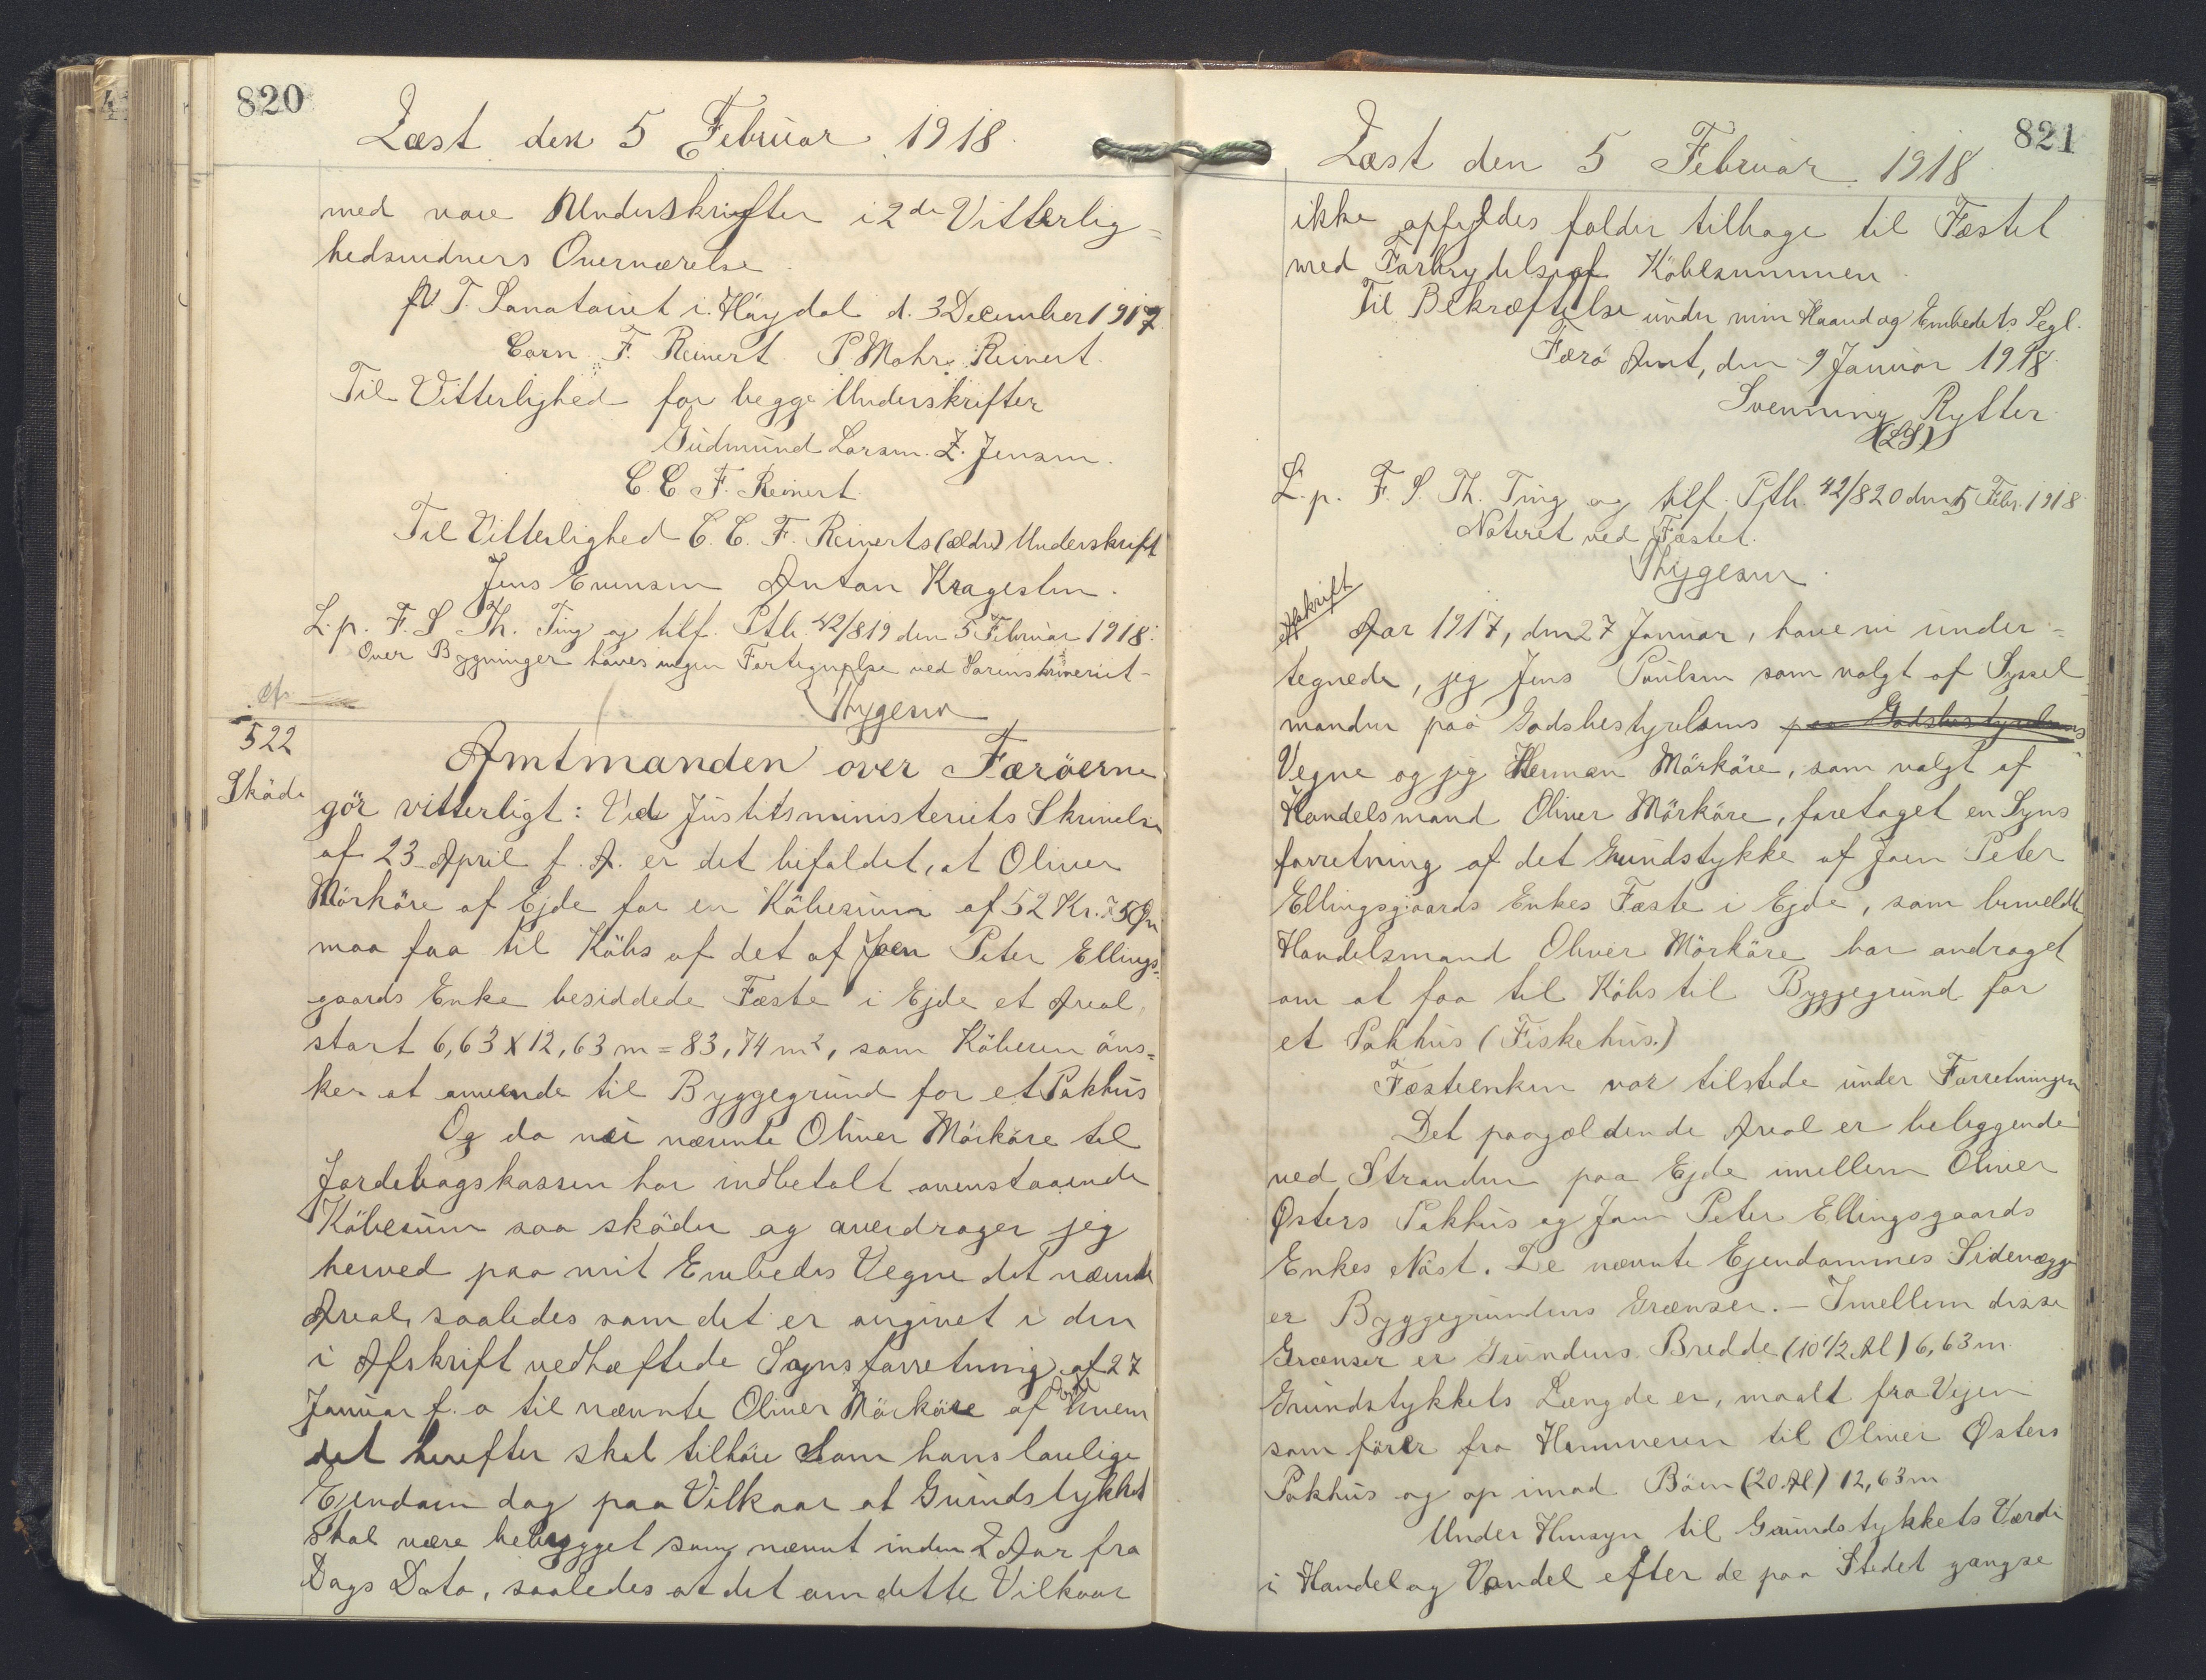 820
Læst den 5 Februar 1918.
med vore Underskrifter i 2de Vitterlig=
hedsvidners Overværelse.
p T. Sanatoriet i Hoydal d. 3 December 1917
Corn. F. Reinert P Mohr Reinert.
Til Vitterlighed for begge Underskrifter
Gudmund Larsen. Z. Jensen.
C. C F. Reinert.
Til Vitterlighed C. C. F. Reinerts (ældre) Underskrift
Jens Evensen Anton Kragesten.
L. p. F. S Th. Ting og tilf. Ptb. 42/819 den 5 Februar 1918.
Over Bygninger haves ingen Fortegnelse ved Sorenskriveriet -
Thygesen
522
Sköde
Amtmanden over Færöerne
gör vitterligt: Ved Justitsministeriets Skrivelse
af 23 April f. A. er det bifaldet, at Oliver
Mörköre af Ejde for en Köbesum af 52 Kr. 75 Øre
maa faa til Köbs af det af Joen Peter Ellings=
gaards Enke besiddede Fæste i Ejde et Areal,
stort 6,63 X 12,63 m = 83,74 m², som Köberen öns=
ker at anvende til Byggegrund for et Pakhus
Og da nu nævnte Oliver Mörköre til
Jordebogskassen har indbetalt ovenstaaende
Köbesum saa sköder og overdrager jeg
herved paa mit Embedes Vegne det nævnte
Areal, saaledes som det er angivet i den
i Afskrift vedhæftede Synsforretning af 27
Januar f. a til nævnte Oliver Mörköre af Ejde hvem
det herefter skal tilhöre som hans lovlige
Ejendom dog paa Vilkaar at Grundstykket
skal være bebygget som nævnt inden 2 Aar fra
Dags Dato, saaledes at det om dette Vilkaar
821
Læst den 5 Februar 1918
ikke opfyldes falder tilbage til Fæstet
med Fortrydelse af Köbesummen.
Til Bekræftelse under min Haand og Embedets Segl.
Færö Amt, den 9 Januar 1918.
Svenning Rytter.
(LS.)
L. p. F. S. Th. Ting og tilf. Ptb. 42/820 den 5 Febr. 1918
Noteret ved Fæstet.
Thygesen.
Afskrift
Aar 1917, den 27 Januar, have vi under=
tegnede, jeg Jens Poulsen som valgt af Syssel
manden paa Godsbestyrelsens paa Godsbestyrelsens
Vegne og jeg Herman Mörköre, som valgt af
Handelsmand Oliver Mörköre, foretaget en Syns
forretning af det Grundstykke af Joen Peter
Ellingsgaards Enkes Fæste i Ejde, som bemeldte
Handelsmand Oliver Mörköre har andraget
om at faa til Köbs til Byggegrund for
et Pakhus (Fiskehus.)
Fæsteenken var tilstede under Forretningen
Det paagældende Areal er beliggende
ved Stranden paa Ejde imellem Oliver
Østers Pakhus og Joen Peter Ellingsgaards
Enkes Nöst. De nævnte Ejendommes Sidevægge
er Byggegrundens Grænser. - Imellem disse
Grænser er Grundens Bredde (10 1/2 Al) 6,63 m.
Grundstykkets Længde er, maalt fra Vejen
som förer fra Hammeren til Oliver Østers
Pakhus og op imod Böen (20 Al) 12,63 m
Under Hensyn til Grundstykkets Værdi
i Handel og Vandel efter de paa Stedet gangse